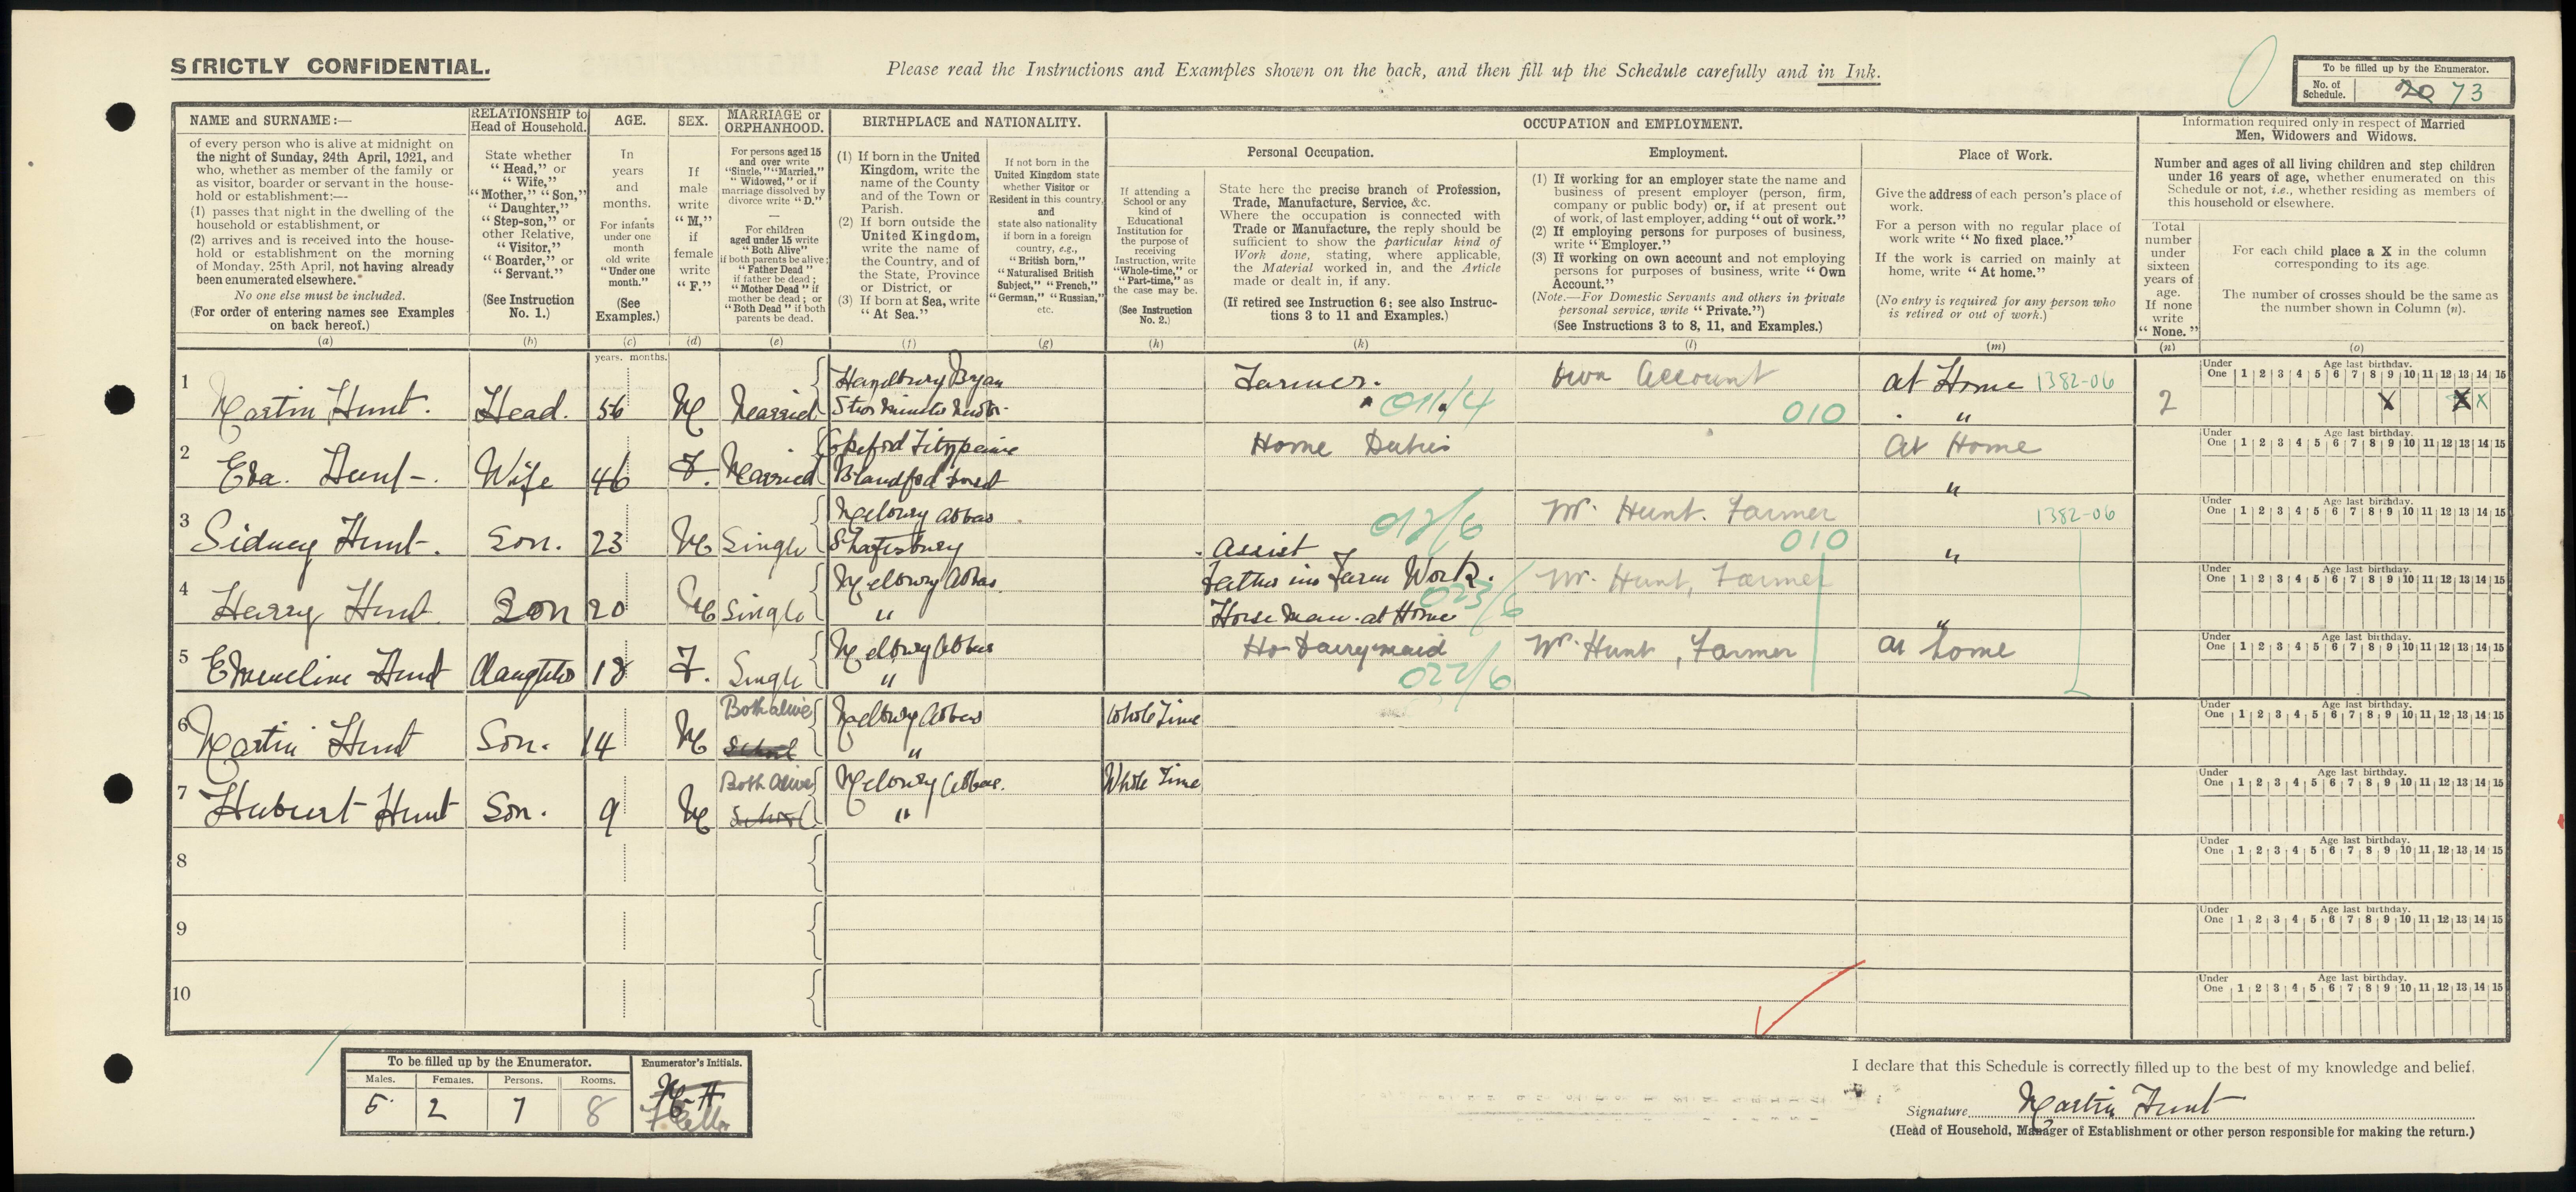 STRICTLY CONFIDENTIAL.
Please read the Instructions and Examples shown on the back, and then fill up the Schedule carefully and in Ink.
To be filled up by the Enumerator.
No. of Schedule. 20 73
NAME and SURNAME:—
of every person who is alive at midnight on
the night of Sunday, 24th April, 1921, and
who, whether as member of the family or
as visitor, boarder or servant in the house-
hold or establishment:—
(1) passes that night in the dwelling of the
household or establishment, or
(2) arrives and is received into the house-
hold or establishment on the morning
of Monday, 25th April, not having already
been enumerated elsewhere.
No one else must be included.
(For order of entering names see Examples
on back hereof.)
(a)
RELATIONSHIP to
Head of Household.
State whether
"Head," or
"Wife,"
"Mother," "Son,"
"Daughter,"
"Step-son," or
other Relative,
"Visitor,"
"Boarder," or
"Servant."
(See Instruction
No. 1.)
(b)
AGE.
In
years
and
months.
For infants
under one
month
old write
"Under one
month."
(See
Examples.)
(c)
SEX.
If
male
write
"M,"
if
female
write
"F."
(d)
MARRIAGE or
ORPHANHOOD.
For persons aged 15
and over write
"Single," "Married,"
"Widowed," or if
marriage dissolved by
divorce write "D."
—
For children
aged under 15 write
"Both Alive"
if both parents be alive;
"Father Dead"
if father be dead;
"Mother Dead" if
mother be dead; or
"Both Dead" if both
parents be dead.
(e)
BIRTHPLACE and NATIONALITY.
(1) If born in the United
Kingdom, write the
name of the County
and of the Town or
Parish.
(2) If born outside the
United Kingdom,
write the name of
the Country, and of
the State, Province
or District, or
(3) If born at Sea, write
"At Sea."
(f)
If not born in the
United Kingdom state
whether Visitor or
Resident in this country,
and
state also nationality
if born in a foreign
country, e.g.,
"British born,"
"Naturalised British
Subject," "French,"
"German," "Russian,"
etc.
(g)
OCCUPATION and EMPLOYMENT.
Personal Occupation.
If attending a
School or any
kind of
Educational
Institution for
the purpose of
receiving
Instruction, write
"Whole-time," or
"Part-time," as
the case may be.
(See Instruction
No. 2.)
(h)
State here the precise branch of Profession,
Trade, Manufacture, Service, &c.
Where the occupation is connected with
Trade or Manufacture, the reply should be
sufficient to show the particular kind of
Work done, stating, where applicable,
the Material worked in, and the Article
made or dealt in, if any.
(If retired see Instruction 6; see also Instruc-
tions 3 to 11 and Examples.)
(k)
Employment.
(1) If working for an employer state the name and
business of present employer (person, firm,
company or public body) or, if at present out
of work, of last employer, adding "out of work."
(2) If employing persons for purposes of business,
write "Employer."
(3) If working on own account and not employing
persons for purposes of business, write "Own
Account."
(Note.—For Domestic Servants and others in private
personal service, write "Private.")
(See Instructions 3 to 8, 11, and Examples.)
(l)
Place of Work.
Give the address of each person's place of
work.
For a person with no regular place of
work write "No fixed place."
If the work is carried on mainly at
home, write "At home."
(No entry is required for any person who
is retired or out of work.)
(m)
Information required only in respect of Married
Men, Widowers and Widows.
Number and ages of all living children and step children
under 16 years of age, whether enumerated on this
Schedule or not, i.e., whether residing as members of
this household or elsewhere.
Total
number
under
sixteen
years of
age.
If none
write
"None."
(n)
For each child place a X in the column
corresponding to its age.
The number of crosses should be the same as
the number shown in Column (n).
(o)
years. months.
Under One Age last birthday. 1 2 3 4 5 6 7 8 9 10 11 12 13 14 15
1 Martin Hunt. Head. 56 M Married Sturminster Newton Farmer. 011/4 Own Account 010 at Home 1382-06 " 2 X X X
2 Eva. Hunt. Wife 46 F. Married Okeford Fitzpaine Blandford Dorset Home Duties At Home "
3 Sidney Hunt. Son. 23 M Single Melbury Abbas Shaftesbury Assist 012/6 Mr. Hunt. Farmer 010 " 1382-06
4 Harry Hunt. Son 20 M Single Melbury Abbas " Father in Farm Work. Horseman at Home 023/6 Mr. Hunt, Farmer "
5 Emmeline Hunt Daughter 18 F. Single Melbury Abbas " Dairymaid 022/6 Mr. Hunt, Farmer At home
6 Martin Hunt Son. 14 M Both alive School Melbury Abbas " Whole Time
7 Hubert Hunt Son. 9 M Both Alive School Melbury Abbas. " Whole Time
8
9
10
To be filled up by the Enumerator.
Males. Females. Persons. Rooms.
5 2 7 8
Enumerator's Initials.
I declare that this Schedule is correctly filled up to the best of my knowledge and belief.
Signature Martin Hunt
(Head of Household, Manager of Establishment or other person responsible for making the return.)